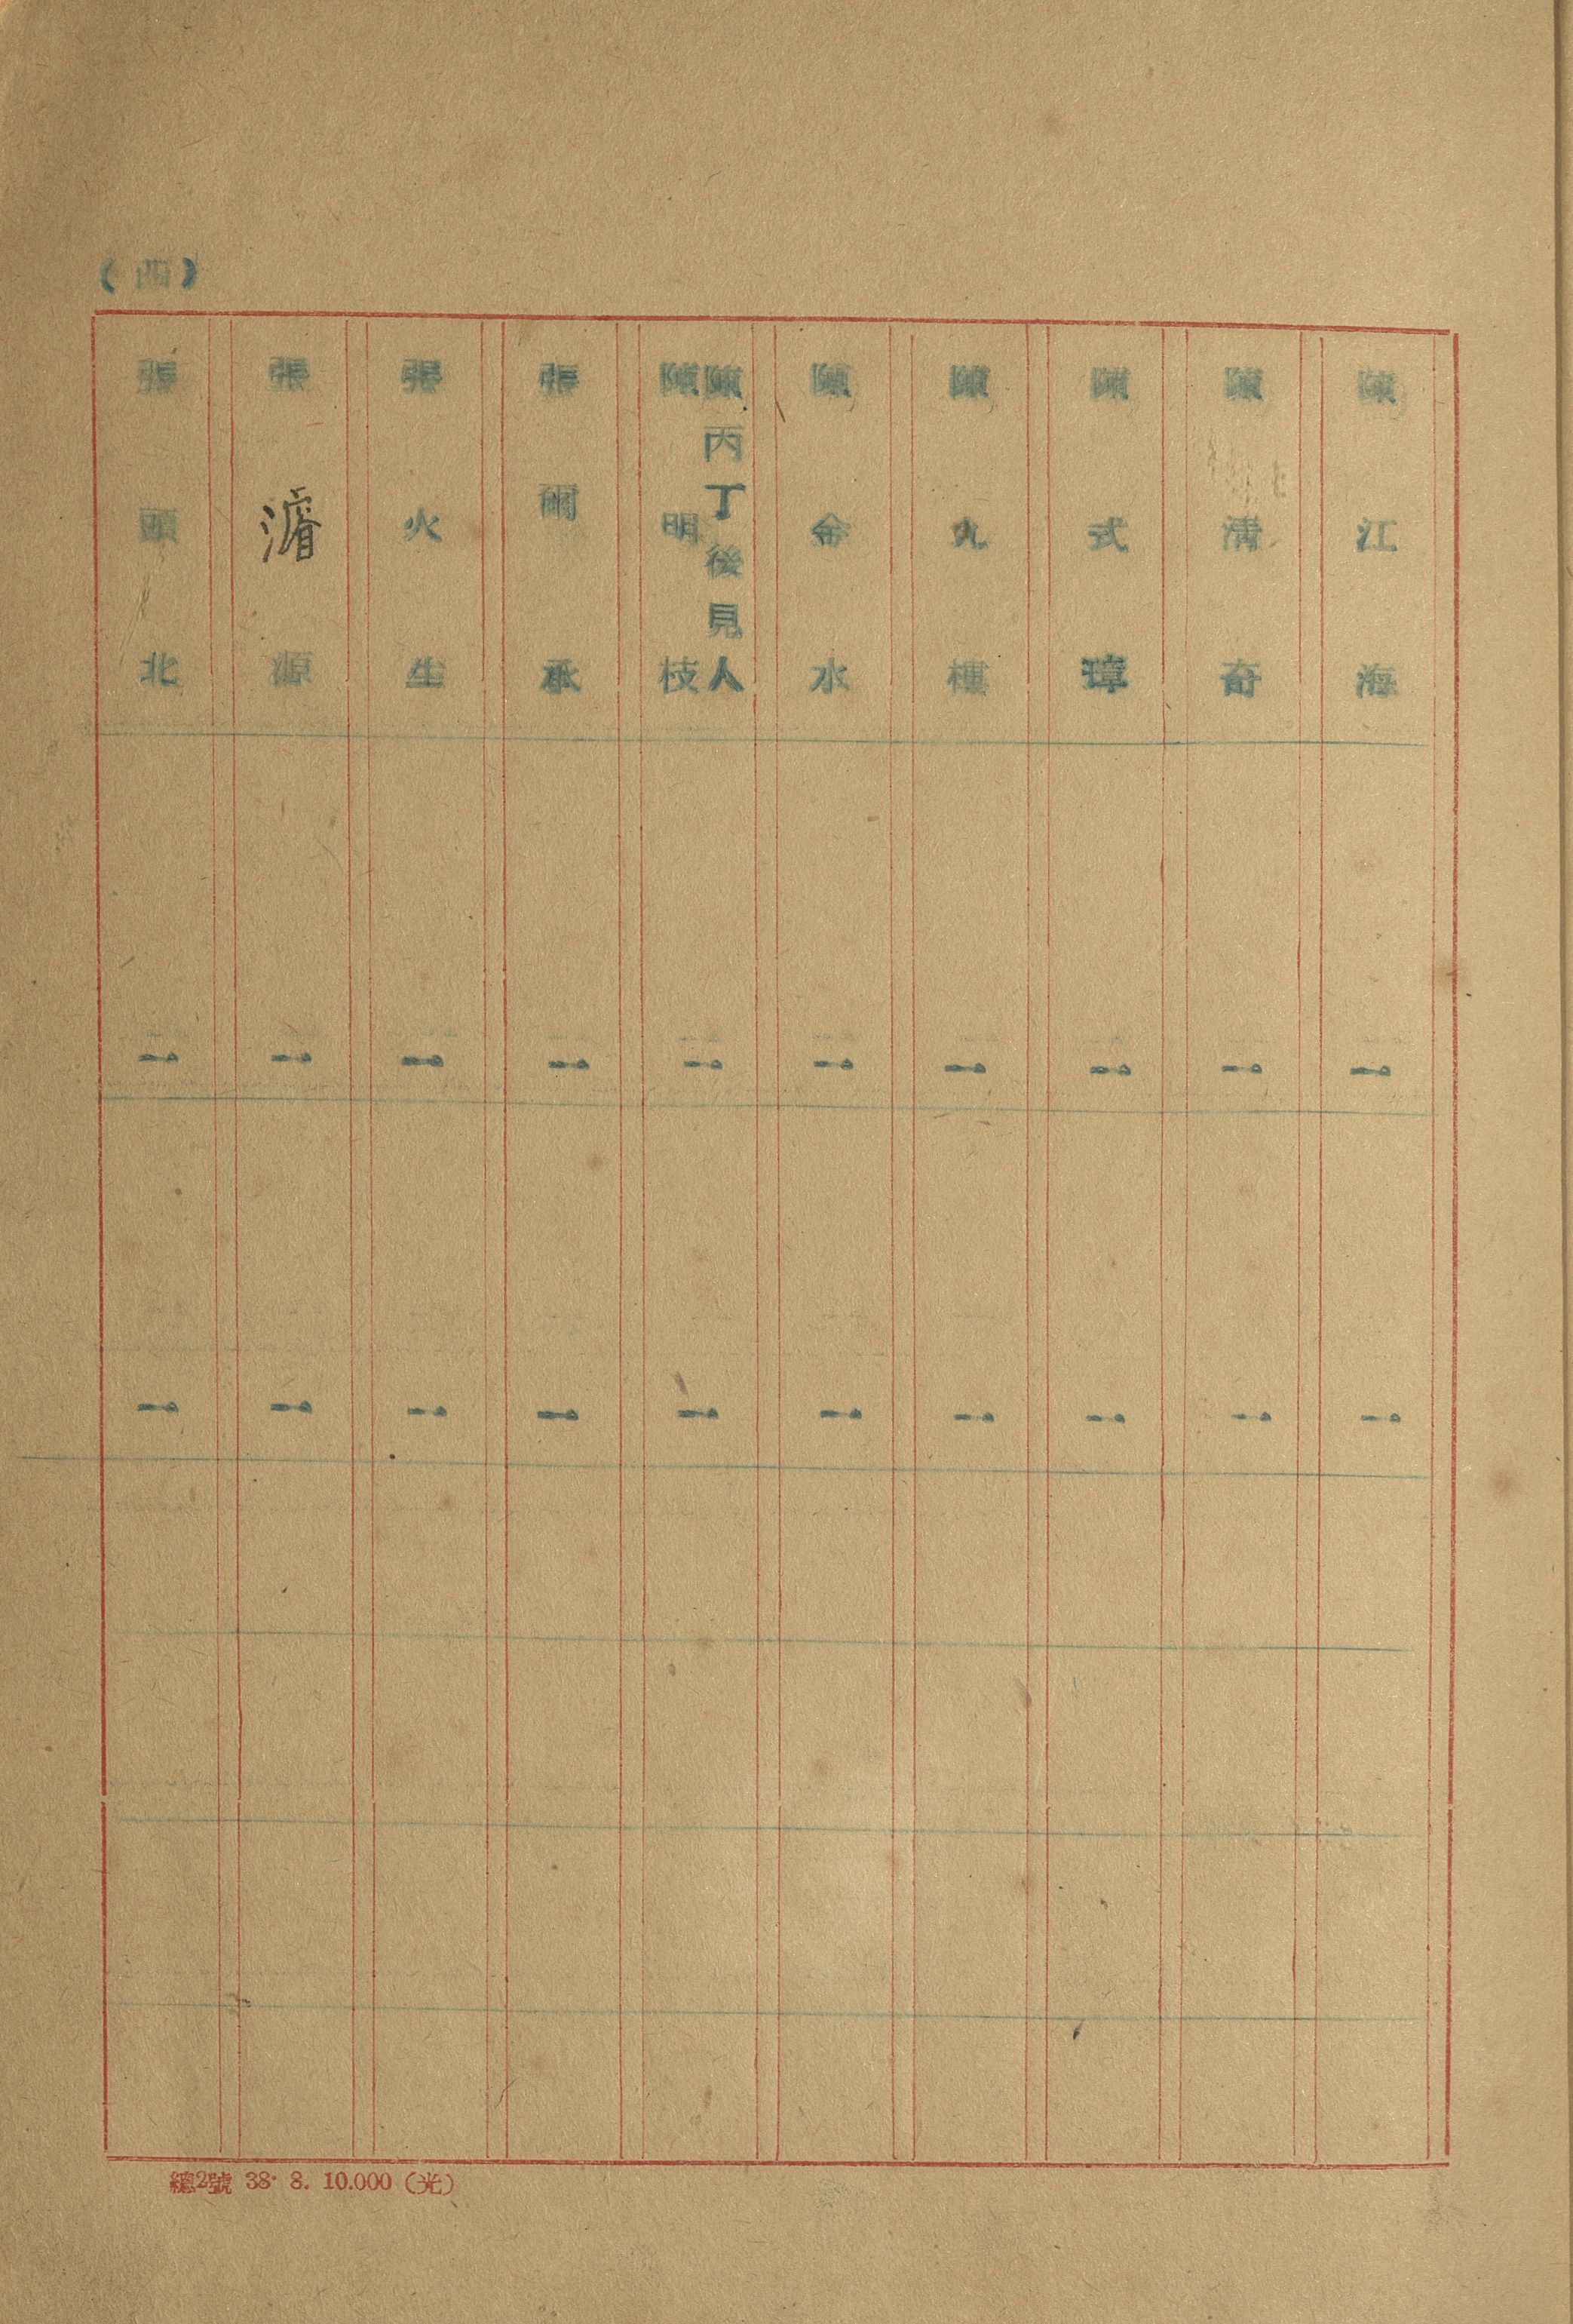 (四)
陳江海 一 一
陳清奇 一 一
陳式璋 一 一
陳九 一 一
陳金水 一 一
陳丙丁後見人
陳明枝 一 一
張爾承 一 一
張火生 一 一
張 源 一 一
張頭北 一 一
總2號 38. 8. 10.000 (光)